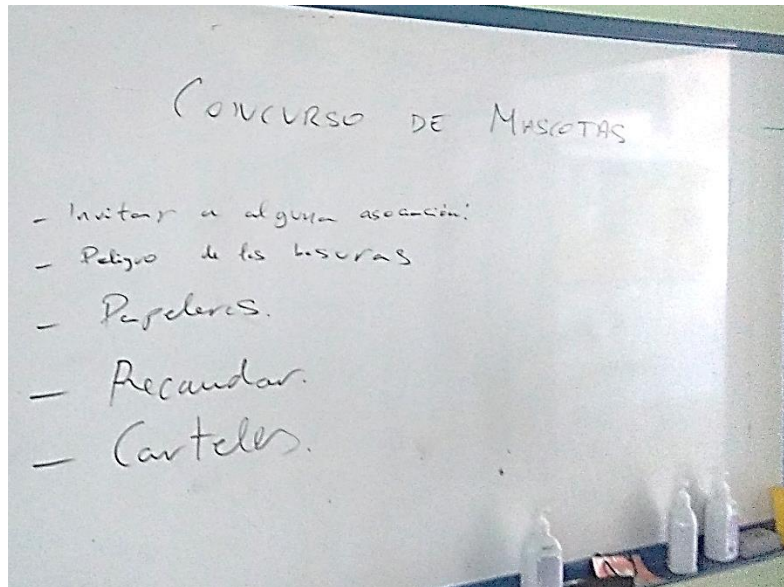 CONCURSO DE MASCOTAS
- Invitar a alguna asociación:
- Peligro de las basuras
- Papeleras.
- Recaudar.
- Carteles.